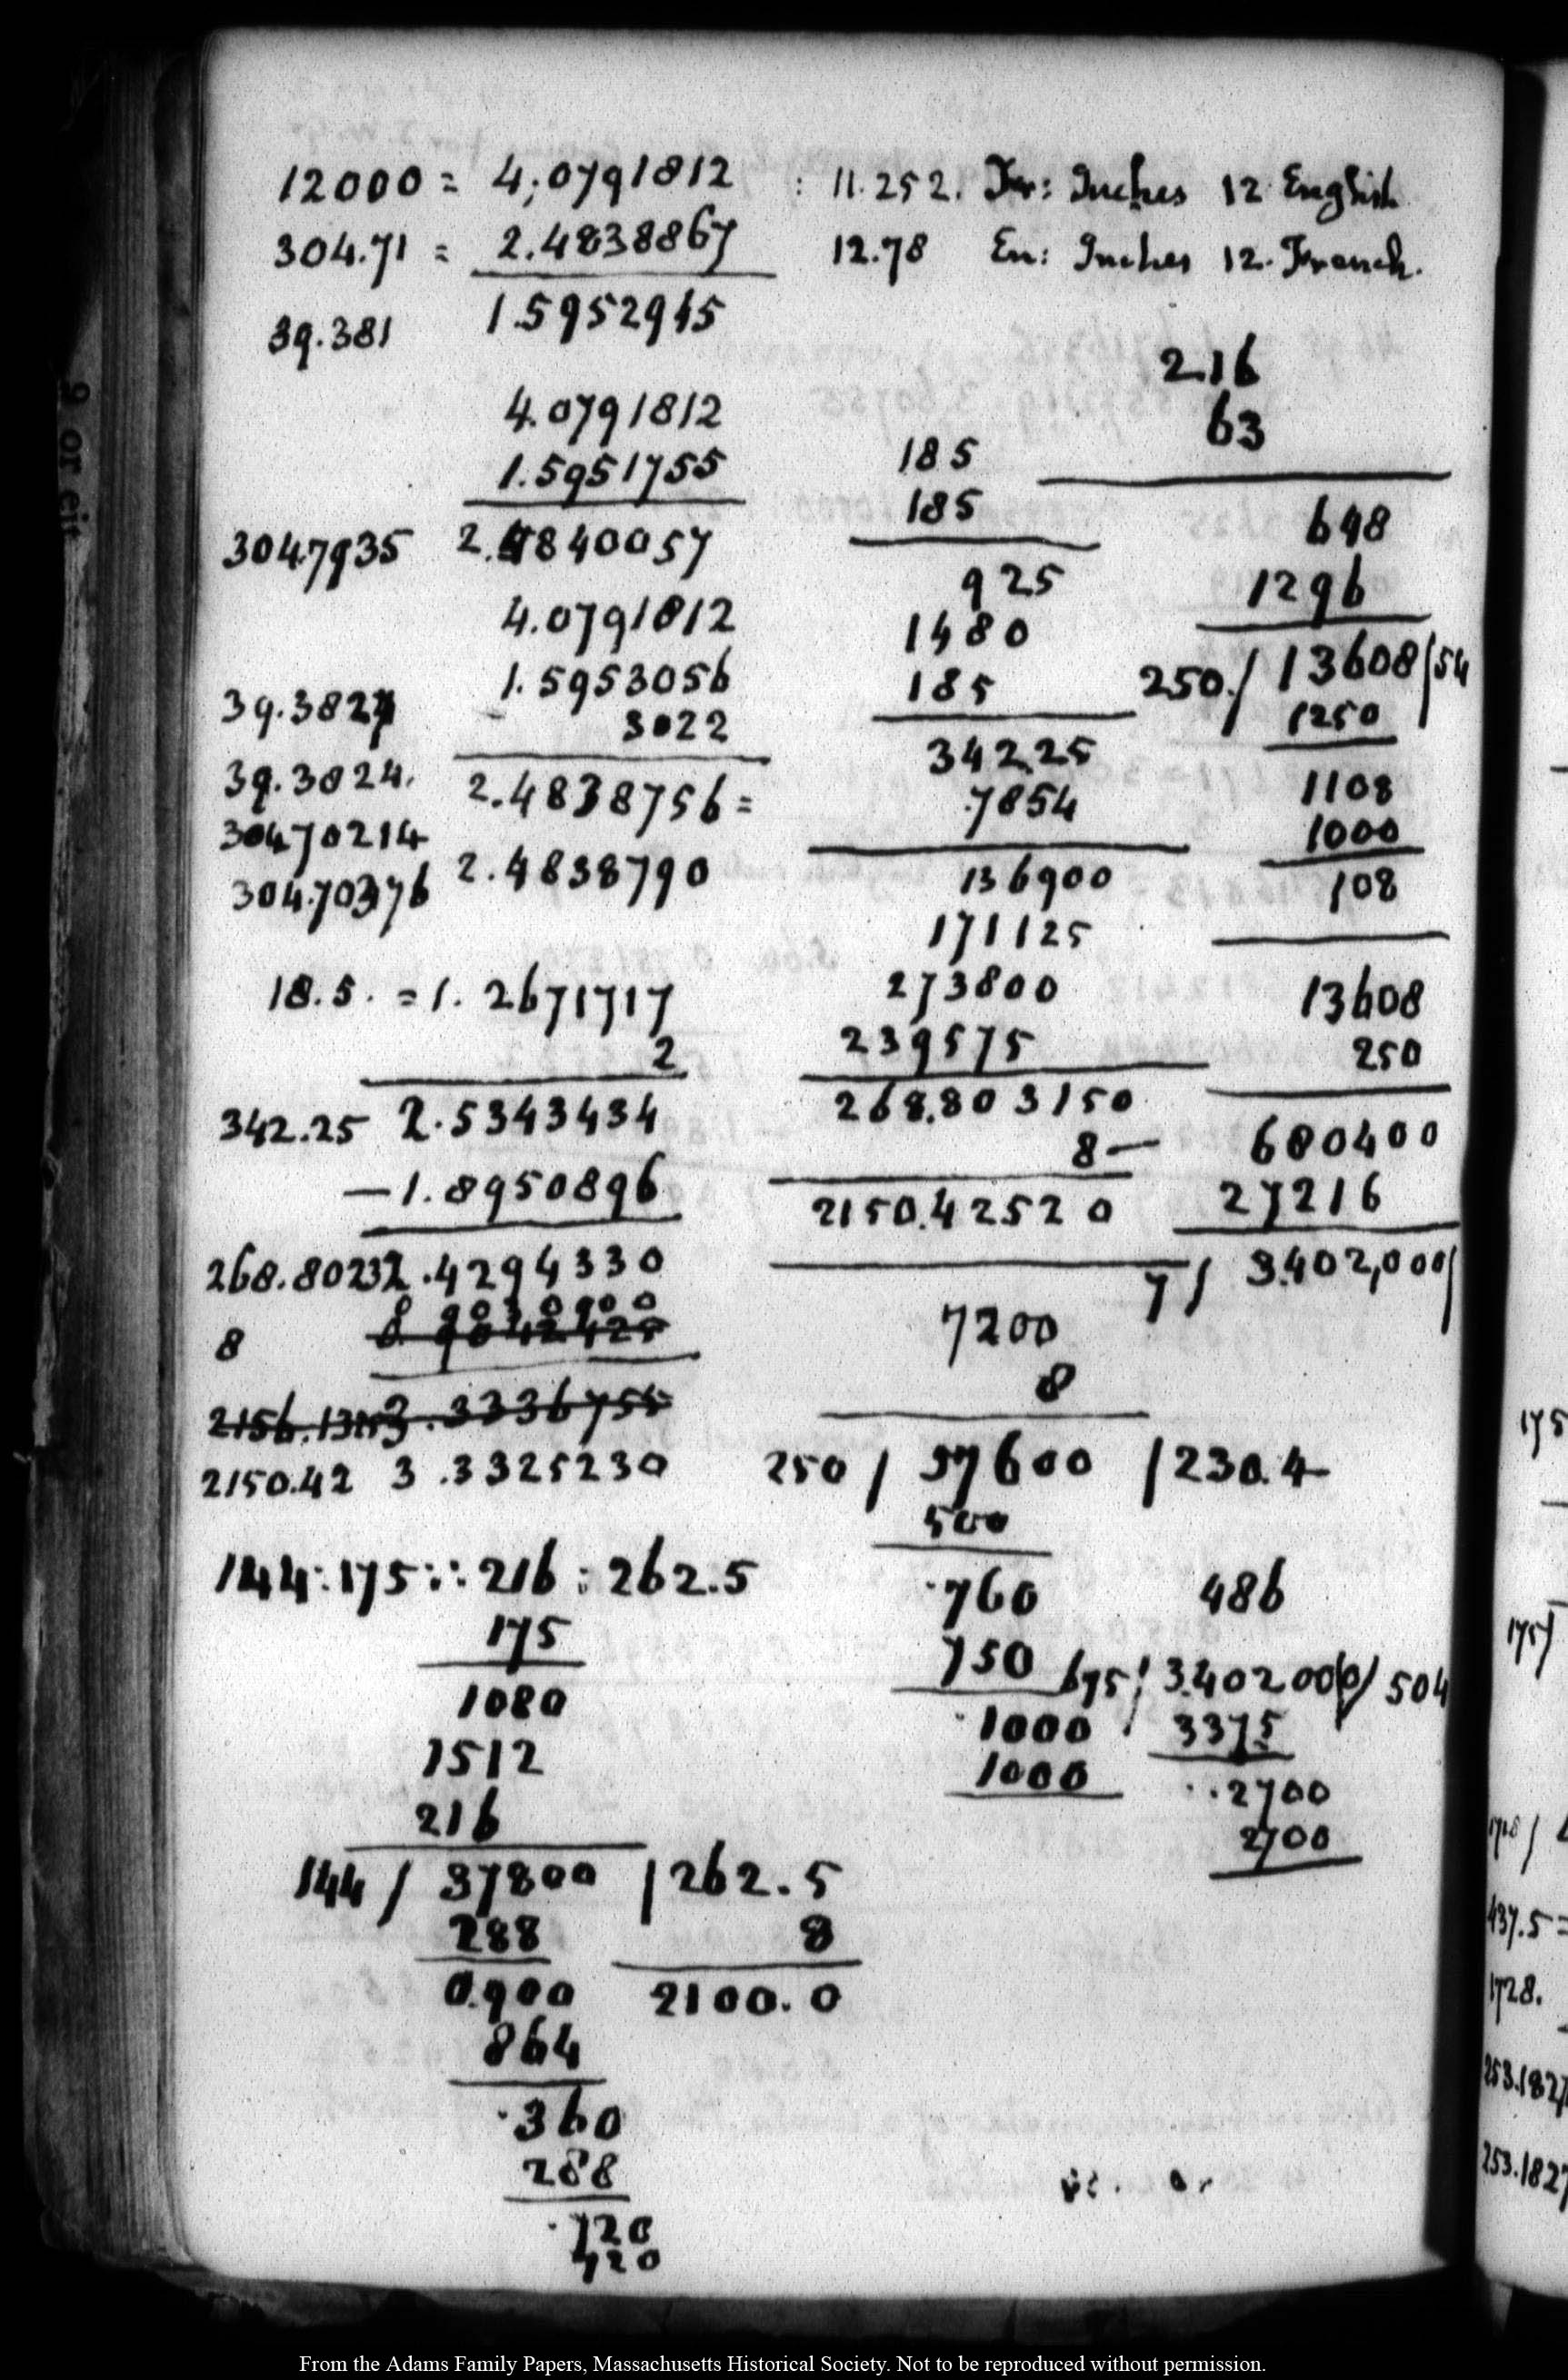 12000 = 4,0791812
304.71 = 2.4838867
39.381 1.5952945
4.0791812
1.5951755
304.7935 2.4840057
4.0791812
1.5953056
39.3827 3022
39.3824. 2.4838756=
304.70214
304.70376 2.4838790
18.5. =1.2671717
2
342.25 2.5343434
—1.8950896
268.8023 2.4294330
8 9030900
2156.13 3.3336755
2150.42 3.3325230
144:175::216:262.5
175
1080
1512
216
144/ 37800 /262.5
288 8
0.900 2100.0
864
.360
288
.720
720
: 11.252. Fr: Inches 12 English
12.78 En: Inches 12. French.
185
185
925
1480
185
342.25
.7854
136900
171125
273800
239575
268.803150
8—
2150.42520
7200
8
250/ 57600 /230.4
500
.760
750
.1000
1000
216
63
648
1296
250./ 13608/54
1250
1108
1000
108
13608
250
680400
27216
7/ 3.402,000/
486
675/ 3.402000/ 504
3375
..2700
2700
175
175/
1728/
437.5=
1728.
253.1827
253.1827
9 or cit
From the Adams Family Papers, Massachusetts Historical Society. Not to be reproduced without permission.